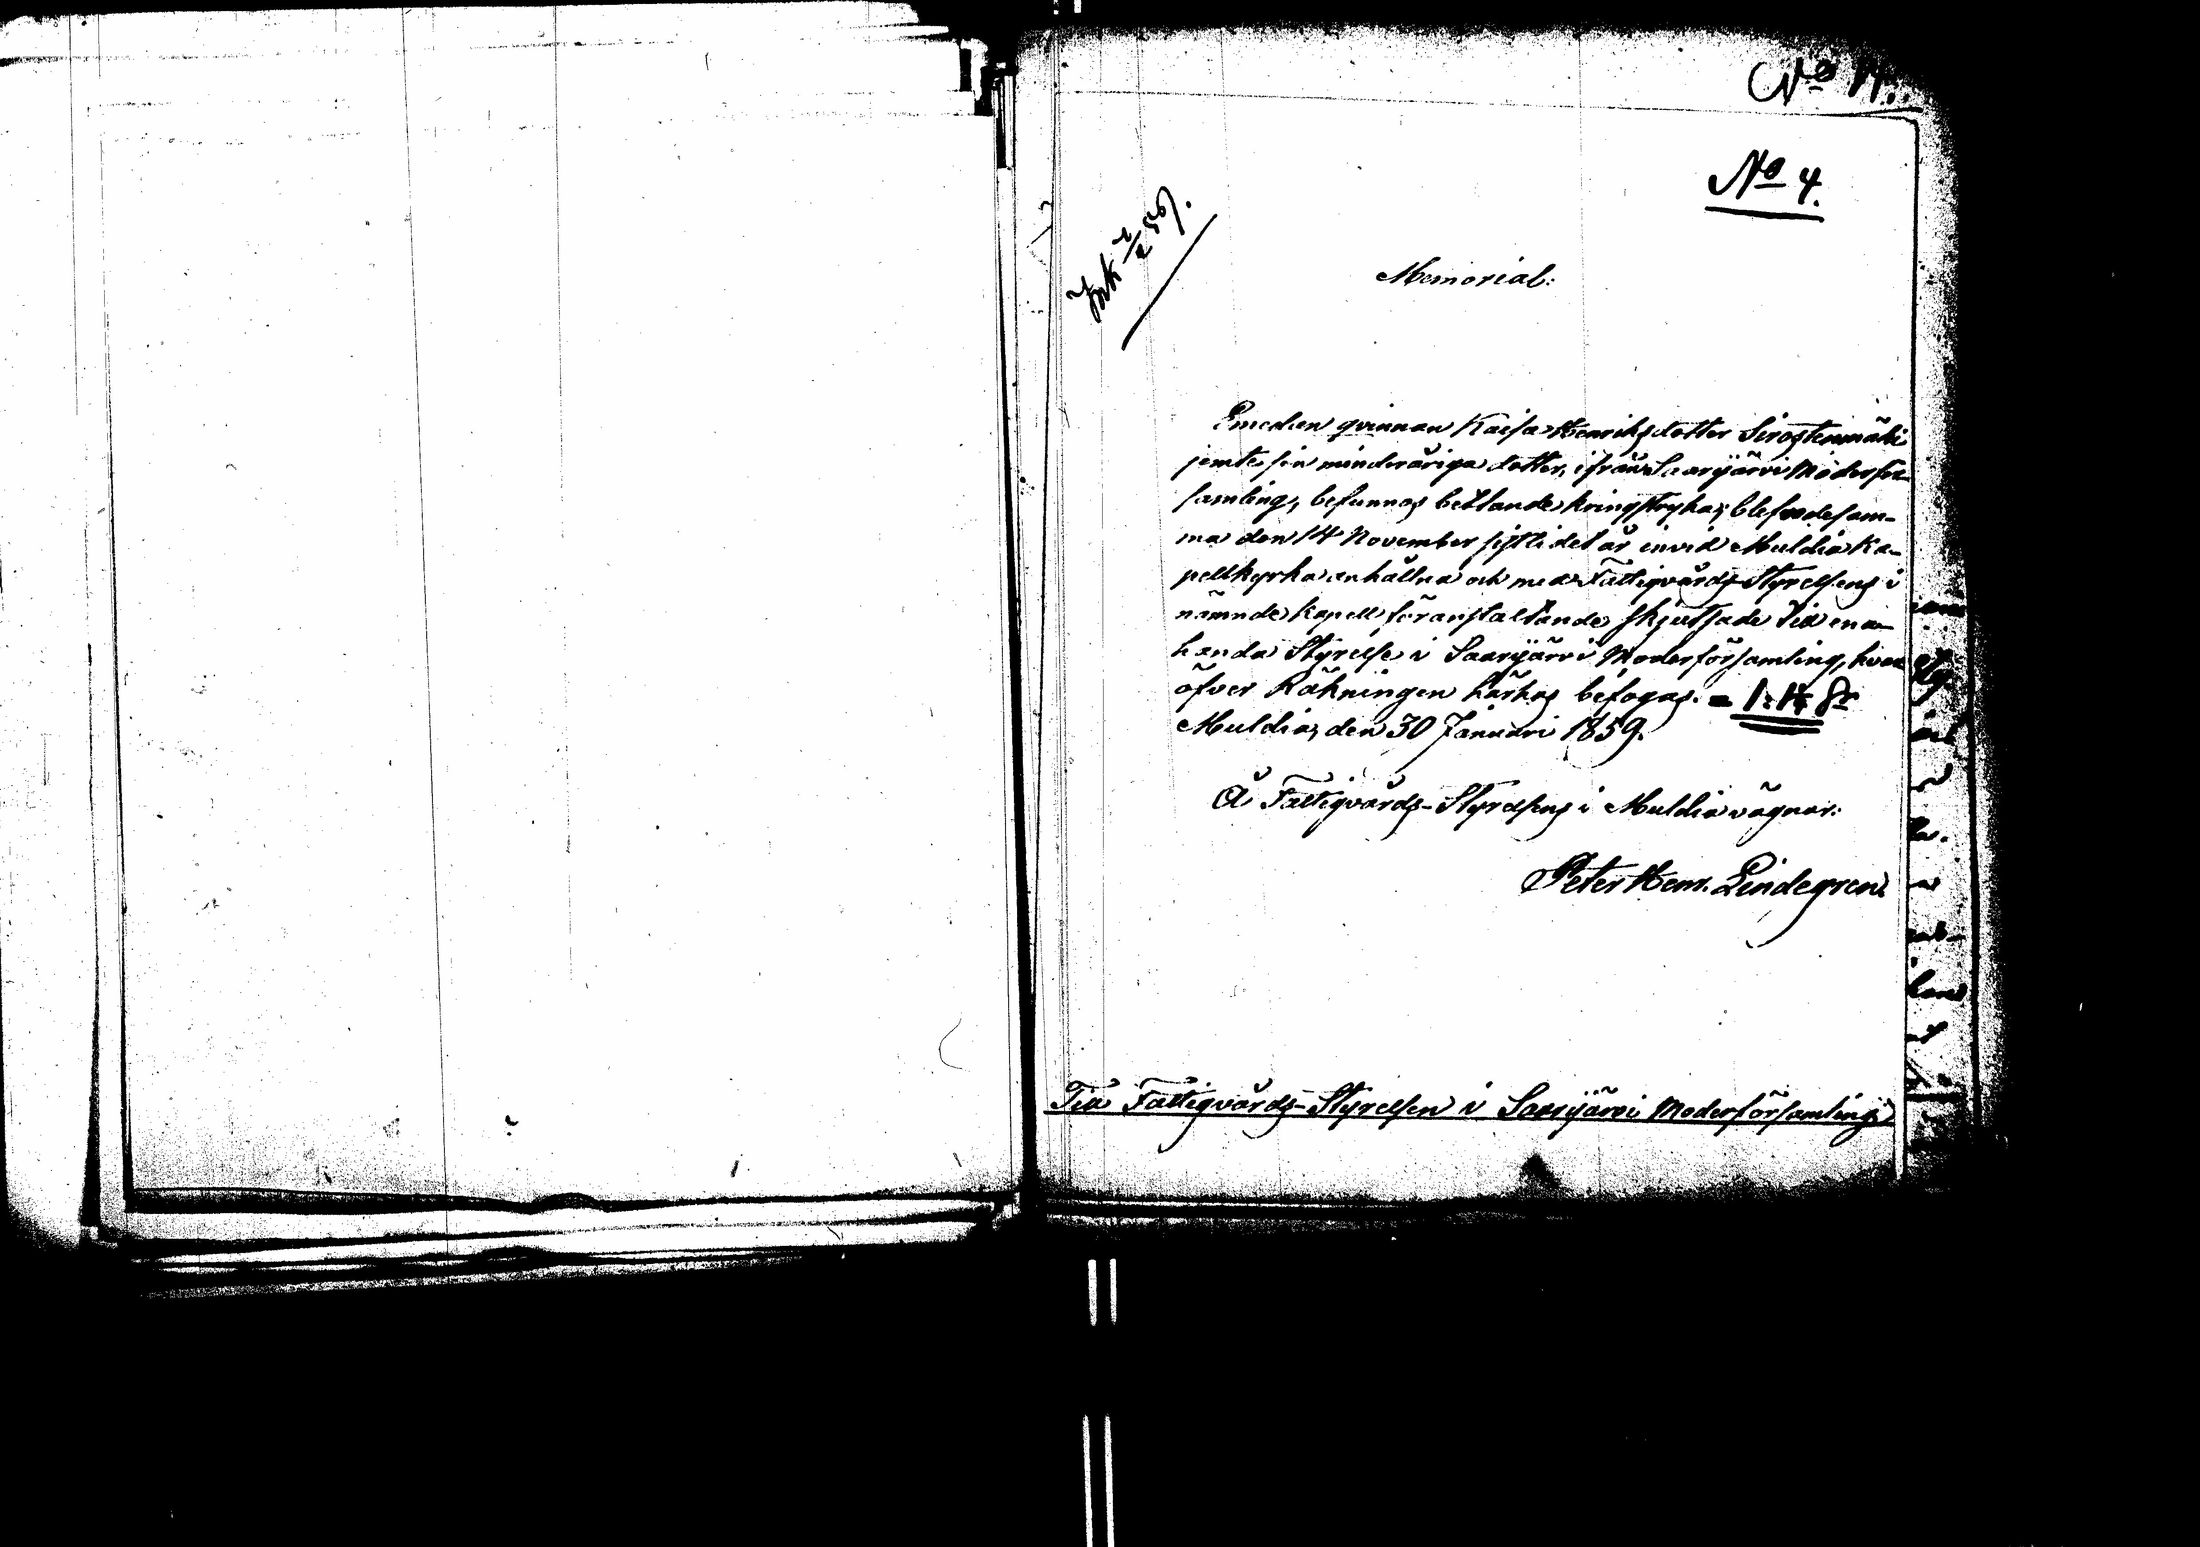 No 4.
Ink 7/2 59.
Memorial:
Emedan qvinnan Kaisa Henriksdotter
jemte sin minderåriga dotter, ifrån Saarijärvi Moderför-
samling, befunnos betlande kringstryka; blefvo desam-
ma den 14 November sistlidet år invid Multia Ka-
pellkyrka anhållna och med Fattigvårds-Styrelsens i
nämnde Kapell föranstaltande skjutsade till ena-
handa Styrelse i Saarijärvi Moderförsamling, hvar-
öfver Räkningen härhos bifogas. =
Multia, den 30 Januari 1859.
Å Fattigvårds-Styrelsens i Multia vägnar:
Peter Henr. Lindegren
Till Fattigvårds-Styrelsen i Saarijärvi Moderförsamling